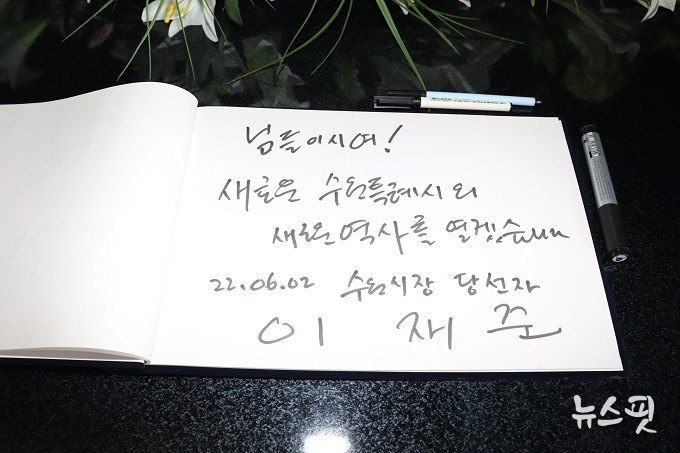 님들이시여!
새로운 수원특례시의
새로운 역사를 열겠습니다
22.06.02 수원시장 당선자
이 재 준
뉴스핏